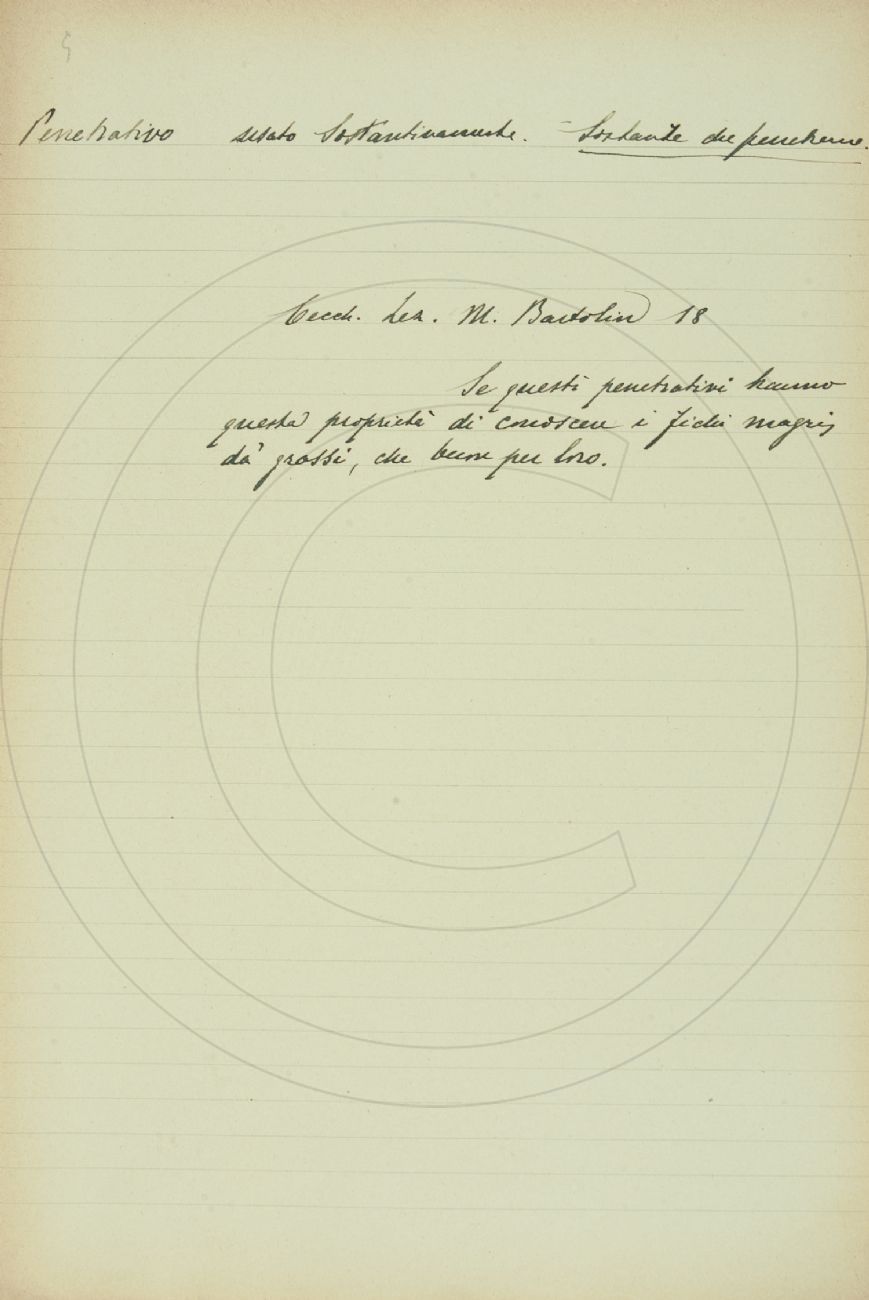 Penetrativo usato Sostantivamente. - Sostanze che penetrano.
Cecch. Lez. M. Bartolin 18
Se questi penetrativi hanno
questa proprietà di conoscere i fichi magri,
da' grossi, che buon per loro.